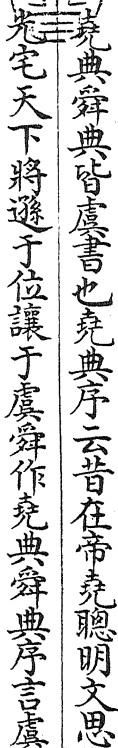 堯典舜典皆虞書也堯典序云昔在帝堯聰明文思
光宅天下將遜于位讓于虞舜作堯典舜典序言虞